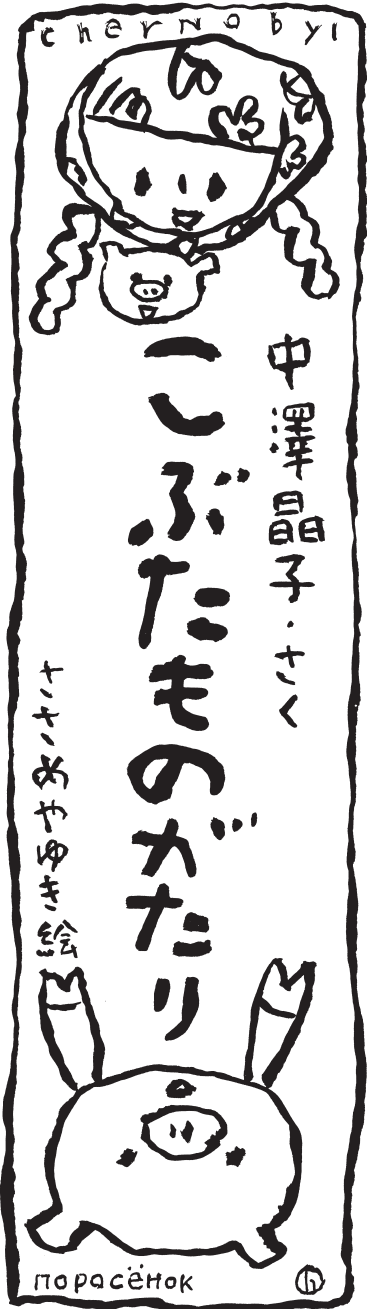 chernobyl
中澤晶子・さく
こぶたものがたり
ささめやゆき絵
поросёнок
h